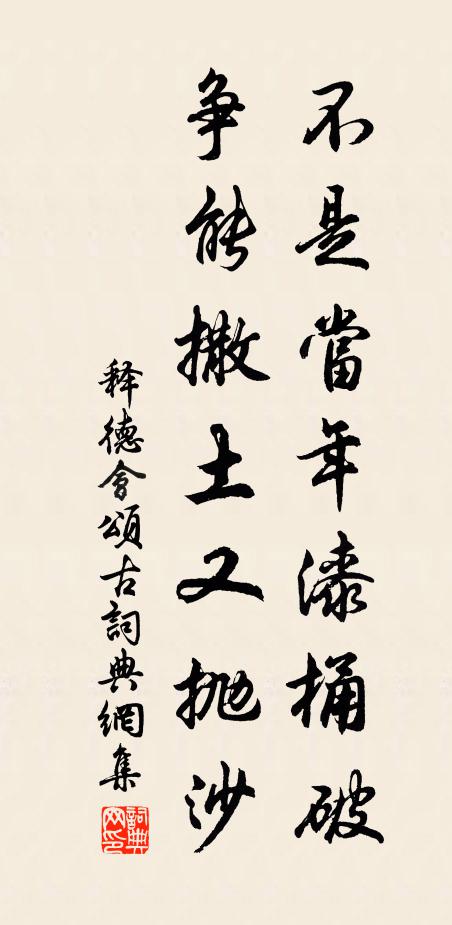 不是當年漆桶破
争能撒土又抛沙
释德會頌古詞典網集
詞典網印